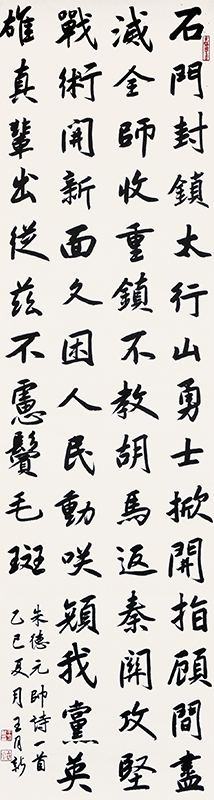 石門封鎖太行山勇士掀開指顧間盡
滅全師收重鎮不教胡馬返秦關攻堅
戰術開新面久困人民動咲顏我黨英
雄真輩出從茲不慮鬢毛斑
朱德元帥詩一首
乙巳夏月王